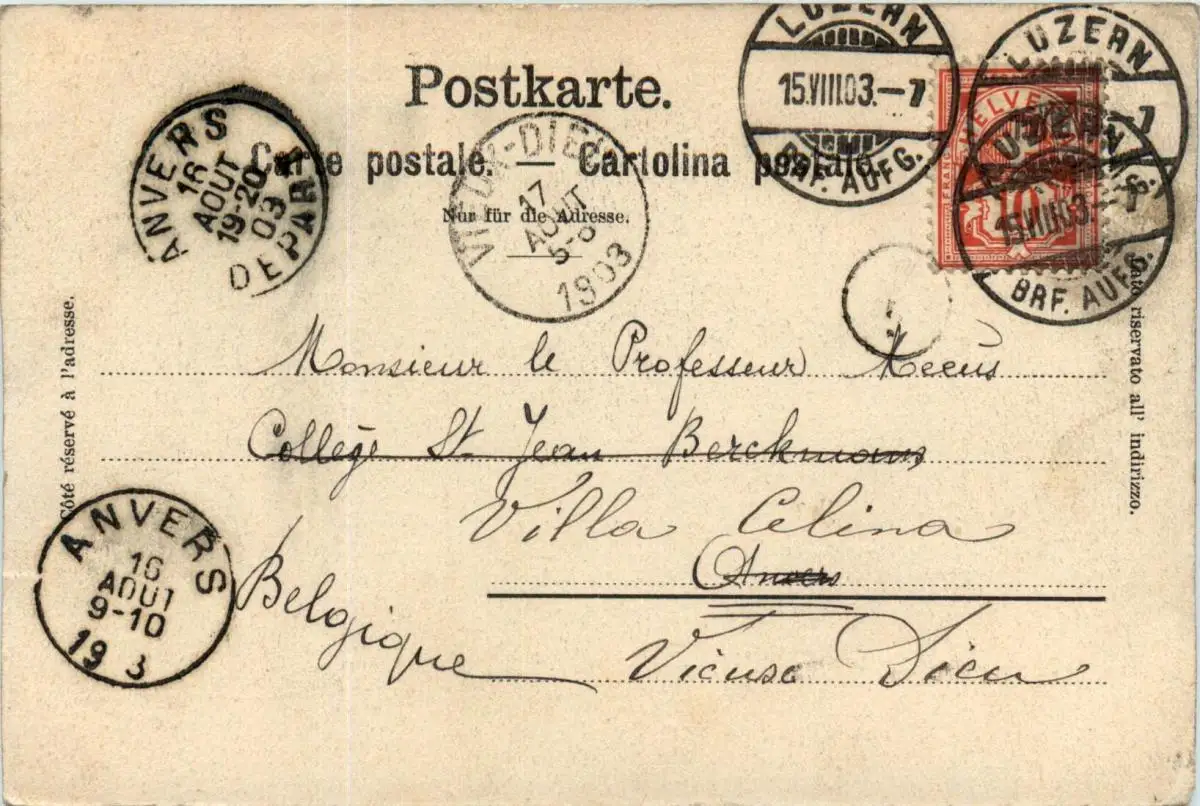 Postkarte.
Carte postale. — Cartolina postale.
Nur für die Adresse.
LUZERN
15.VIII.03.–7
BRF. AUFG.
LUZERN
–7
LUZERN
15.VIII.03.–7
BRF. AUFG.
HELVETIA
FRANCO
10
ANVERS
16
AOUT
19-20
03
DEPART
VIEUX-DIEU
17
AOUT
1903
Côté réservé à l'adresse.
Lato riservato all' indirizzo.
Monsieur le Professeur Meeùs
Collège St. Jean Berckmans
Villa Celina
Anvers
Belgique
Vieux Dieu
ANVERS
16
AOUT
9-10
19 3